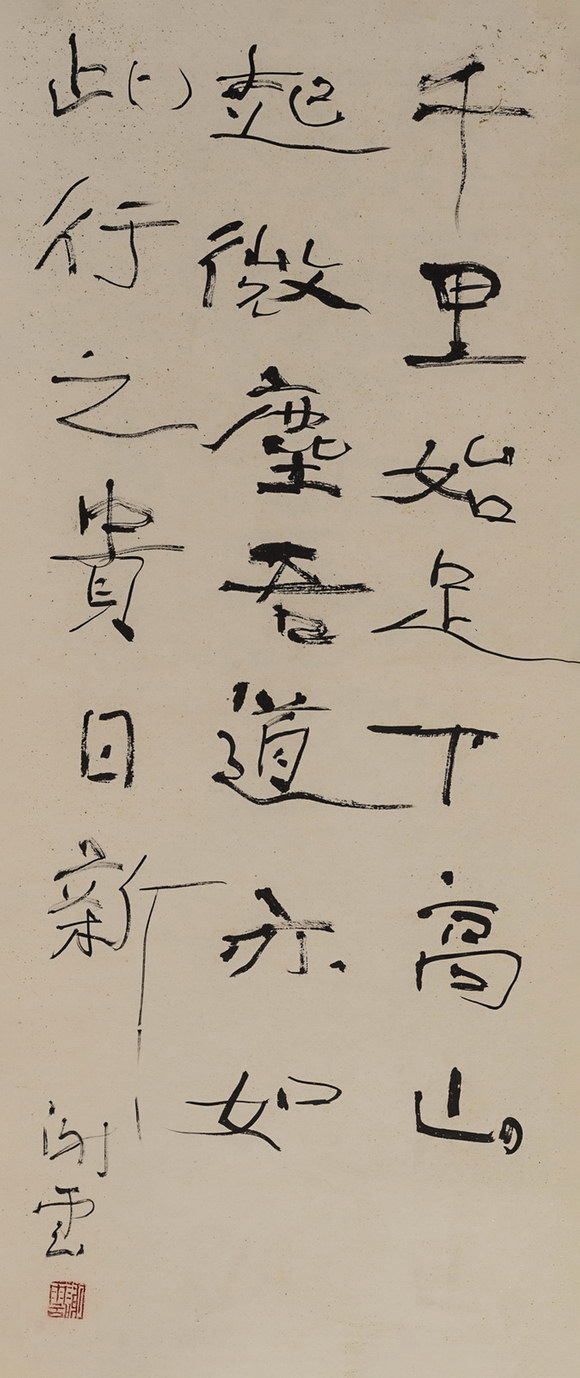 千里始足下高山
起微塵吾道亦如
此行之貴日新
謝雲
謝雲